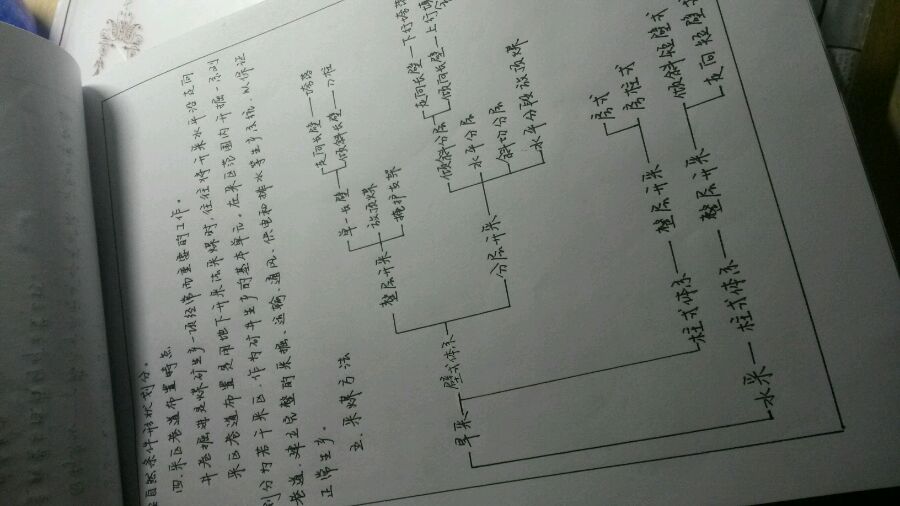 自然条件形状划分。
四.采区巷道布置特点
井巷掘进是煤矿生产一项经常而重要的工作。
采区巷道布置是用地下开采法采煤时,往往将开采水平沿走向
划分为若干采区,作为矿井生产的基本单元。在采区范围内开掘一系列
巷道,建立完整的采掘、运输、通风、供电和排水等生产系统,以保证
正常生产。
五.采煤方法
旱采 壁式体系 整层开采 单一长壁 走向长壁
倾斜长壁
放顶煤
掩护支架
分层开采 倾斜分层 走向长壁 下行垮落
倾向长壁 上行
水平分层
斜切分层
水平分段放顶煤
柱式体系 整层开采 房式
房柱式
水采 柱式体系 整层开采 倾斜短壁式
走向短壁式